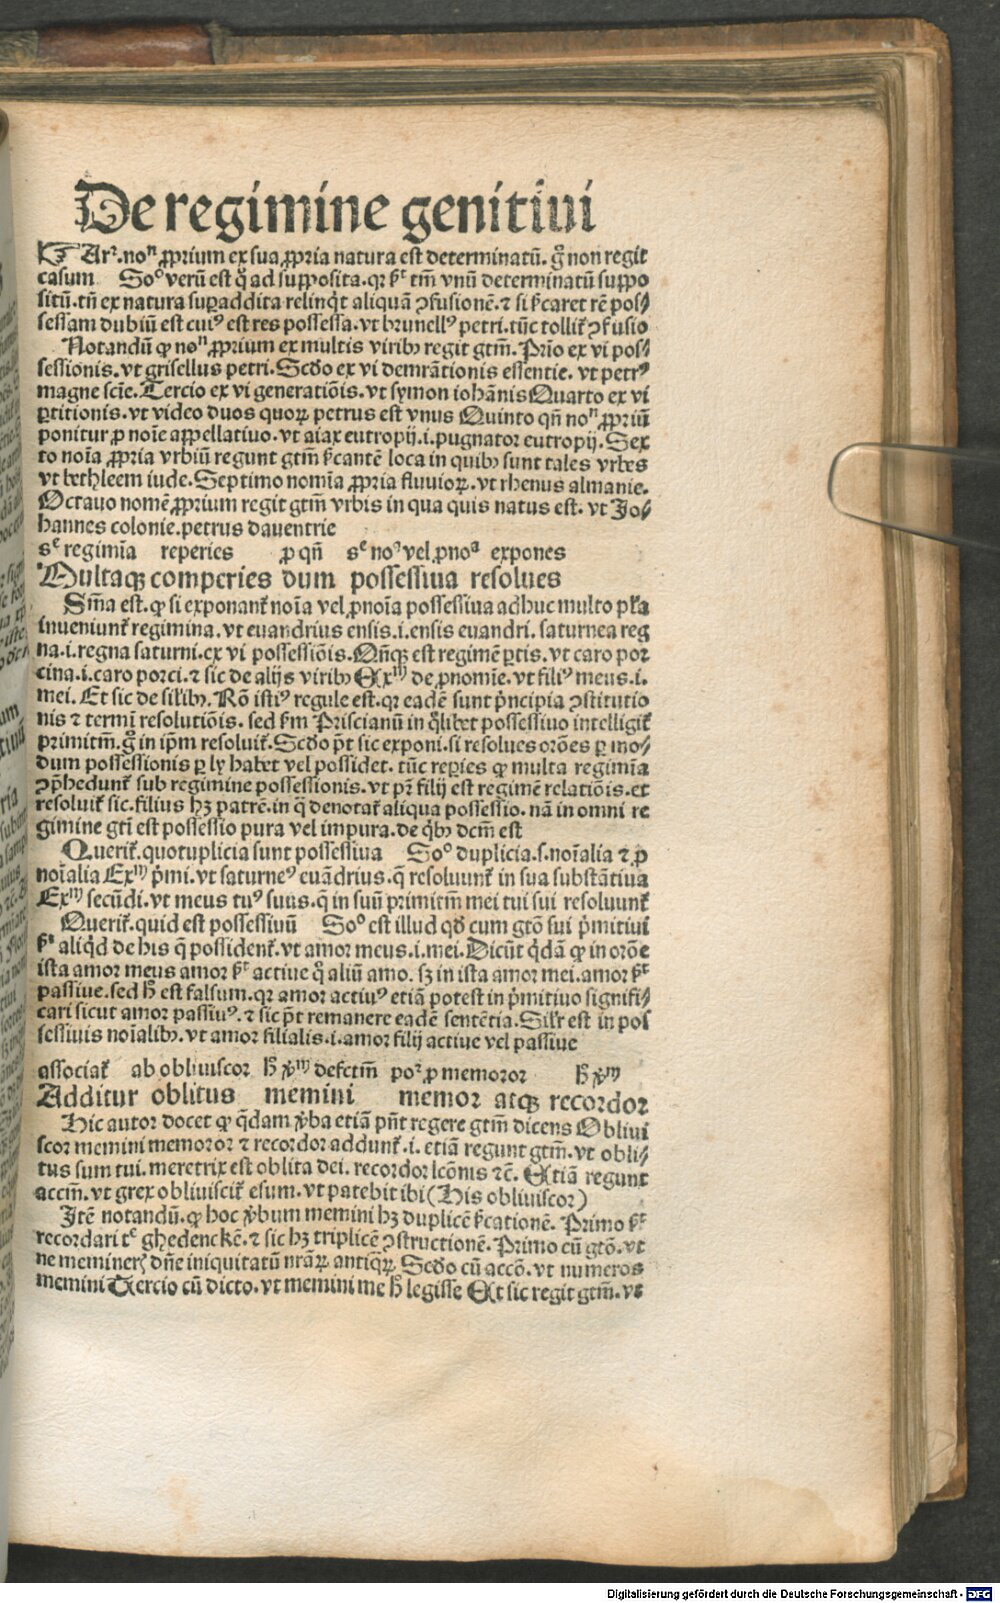 De regimine genitiui
☞ Arꝛ. noⁿ ꝓprium ex sua ꝓpria natura est determinatū. gͦ non regit
casum Soᵒ verū est qͦ ad supposita. qꝛ ẜᵗ tm̄ vnū determinatū suppo
sitū. tn̄ ex natura suꝑaddita relinq̇t aliquā ꝯfusionē. ⁊ si ẜcaret rē pos⸗
sessam dubiū est cuiꝰ est res possessa. vt brunellꝰ petri. tūc tollit̄ ꝯfusio
Notandū ꝙ noⁿ ꝓprium ex multis virib⁹ regit gtm̄. Prīo ex vi pos⸗
sessionis. vt grisellus petri. Scd̄o ex vi demr̄ationis essentie. vt petrꝰ
magne scīe. Tercio ex vi generatiōis. vt symon iohānis Quarto ex vi
ꝑtitionis. vt video duos quoꝝ petrus est vnus Quinto qn̄ noⁿ ꝓpriū
ponitur ꝓ noīe appellatiuo. vt aiax eutropij. i. pugnator eutropij. Sex
to noīa ꝓpria vrbiū regunt gtm̄ ẜcantē loca in quib⁹ sunt tales vrbes
vt bethleem iude. Septimo nomīa ꝓpria fluuioꝝ. vt rhenus almanie.
Octauo nomē ꝓprium regit gtm̄ vrbis in qua quis natus est. vt Jo⸗
hannes colonie. petrus dauentrie
sᵉ regimīa reperies ꝓ qn̄ sᵉ noᵃ vel ꝓnoᵃ expones
Multaqꝫ comperies dum possessiua resolues
Sm̄a est. ꝙ si exponant̄ noīa vel ꝓnoīa possessiua adhuc multo pl̄a
inueniunt̄ regimina. vt euandrius ensis. i. ensis euandri. saturnea reg
na. i. regna saturni. ex vi possessiōis. Qn̄qꝫ est regimē ꝑtis. vt caro por
cina. i. caro porci. ⁊ sic de alijs virib⁹ Exᵐ de ꝓnomīe. vt filiꝰ meus. i.
mei. Et sic de sil̄ib⁹. Rō istiꝰ regule est. qꝛ eadē sunt pͥncipia ꝯstitutio
nis ⁊ termī resolutiōis. sed ẜm Priscianū in ql̄ibet possessiuo intelligit̄
primitm̄. gͦ in ip̄m resoluit̄. Scd̄o pt̄ sic exponi. si resolues orōes ꝑ mo⸗
dum possessionis ꝑ ly habet vel possidet. tūc reꝑies ꝙ multa regimīa
ꝯp̄hedunt̄ sub regimine possessionis. vt pr̄ filij est regimē relatiōis. et
resoluit̄ sic. filius hꝫ patrē. in q̄ denotat̄ aliqua possessio. nā in omni re
gimine gtī est possessio pura vel impura. de qͥb⁹ dcm̄ est
Querit̄. quotuplicia sunt possessiua Soᵒ duplicia. s. noīalia ⁊ ꝓ
noīalia Exᵐ pͥmi. vt saturneꝰ euādrius. q̄ resoluunt̄ in sua substātiua
Exᵐ secūdi. vt meus tuꝰ suus. q̄ in suū primitm̄ mei tui sui resoluunt̄
Querit̄. quid est possessiuū Soᵒ est illud qd̄ cum gtō sui pͥmitiui
ẜᵗ aliqͥd de his q̄ possident̄. vt amor meus. i. mei. Dicūt qͥdā ꝙ in orōe
ista amor meus amor ẜᵗ actiue qͦ aliū amo. sꝫ in ista amor mei. amor ẜᵗ
passiue. sed h̄ est falsum. qꝛ amor actiuꝰ etiā potest in pͥmitiuo signifi⸗
cari sicut amor passiuꝰ. ⁊ sic pt̄ remanere eadē sentētia. Sil̄r est in pos
sessiuis noīalib⁹. vt amor filialis. i. amor filij actiue vel passiue
associat̄ ab obliuiscor h̄ v̄ᵐ defctm̄ poꝛ ꝓ memoror h̄ v̄ᵐ
Additur oblitus memini memor atqꝫ recordor
Hic autor docet ꝙ q̄dam v̄ba etiā pn̄t regere gtm̄ dicens Obliui
scor memini memoror ⁊ recordor addunt̄. i. etiā regunt gtm̄. vt obli⸗
tus sum tui. meretrix est oblita dei. recordor lcōnis ⁊c̄. Etiā regunt
accm̄. vt grex obliuiscit̄ esum. vt patebit ibi (His obliuiscor)
Itē notandū. ꝙ hoc v̄bum memini hꝫ duplicē ẜcationē. Primo ẜᵗ
recordari tᶜ ghedenckē. ⁊ sic hꝫ triplicē ꝯstructionē. Primo cū gtō. vt
ne memineř dn̄e iniquitatū nr̄aꝝ antiq̄ꝝ. Scd̄o cū accō. vt numeros
memini Tercio cū dicto. vt memini me h̄ legisse Et sic regit gtm̄. vt
Digitalisierung gefördert durch die Deutsche Forschungsgemeinschaft - DFG